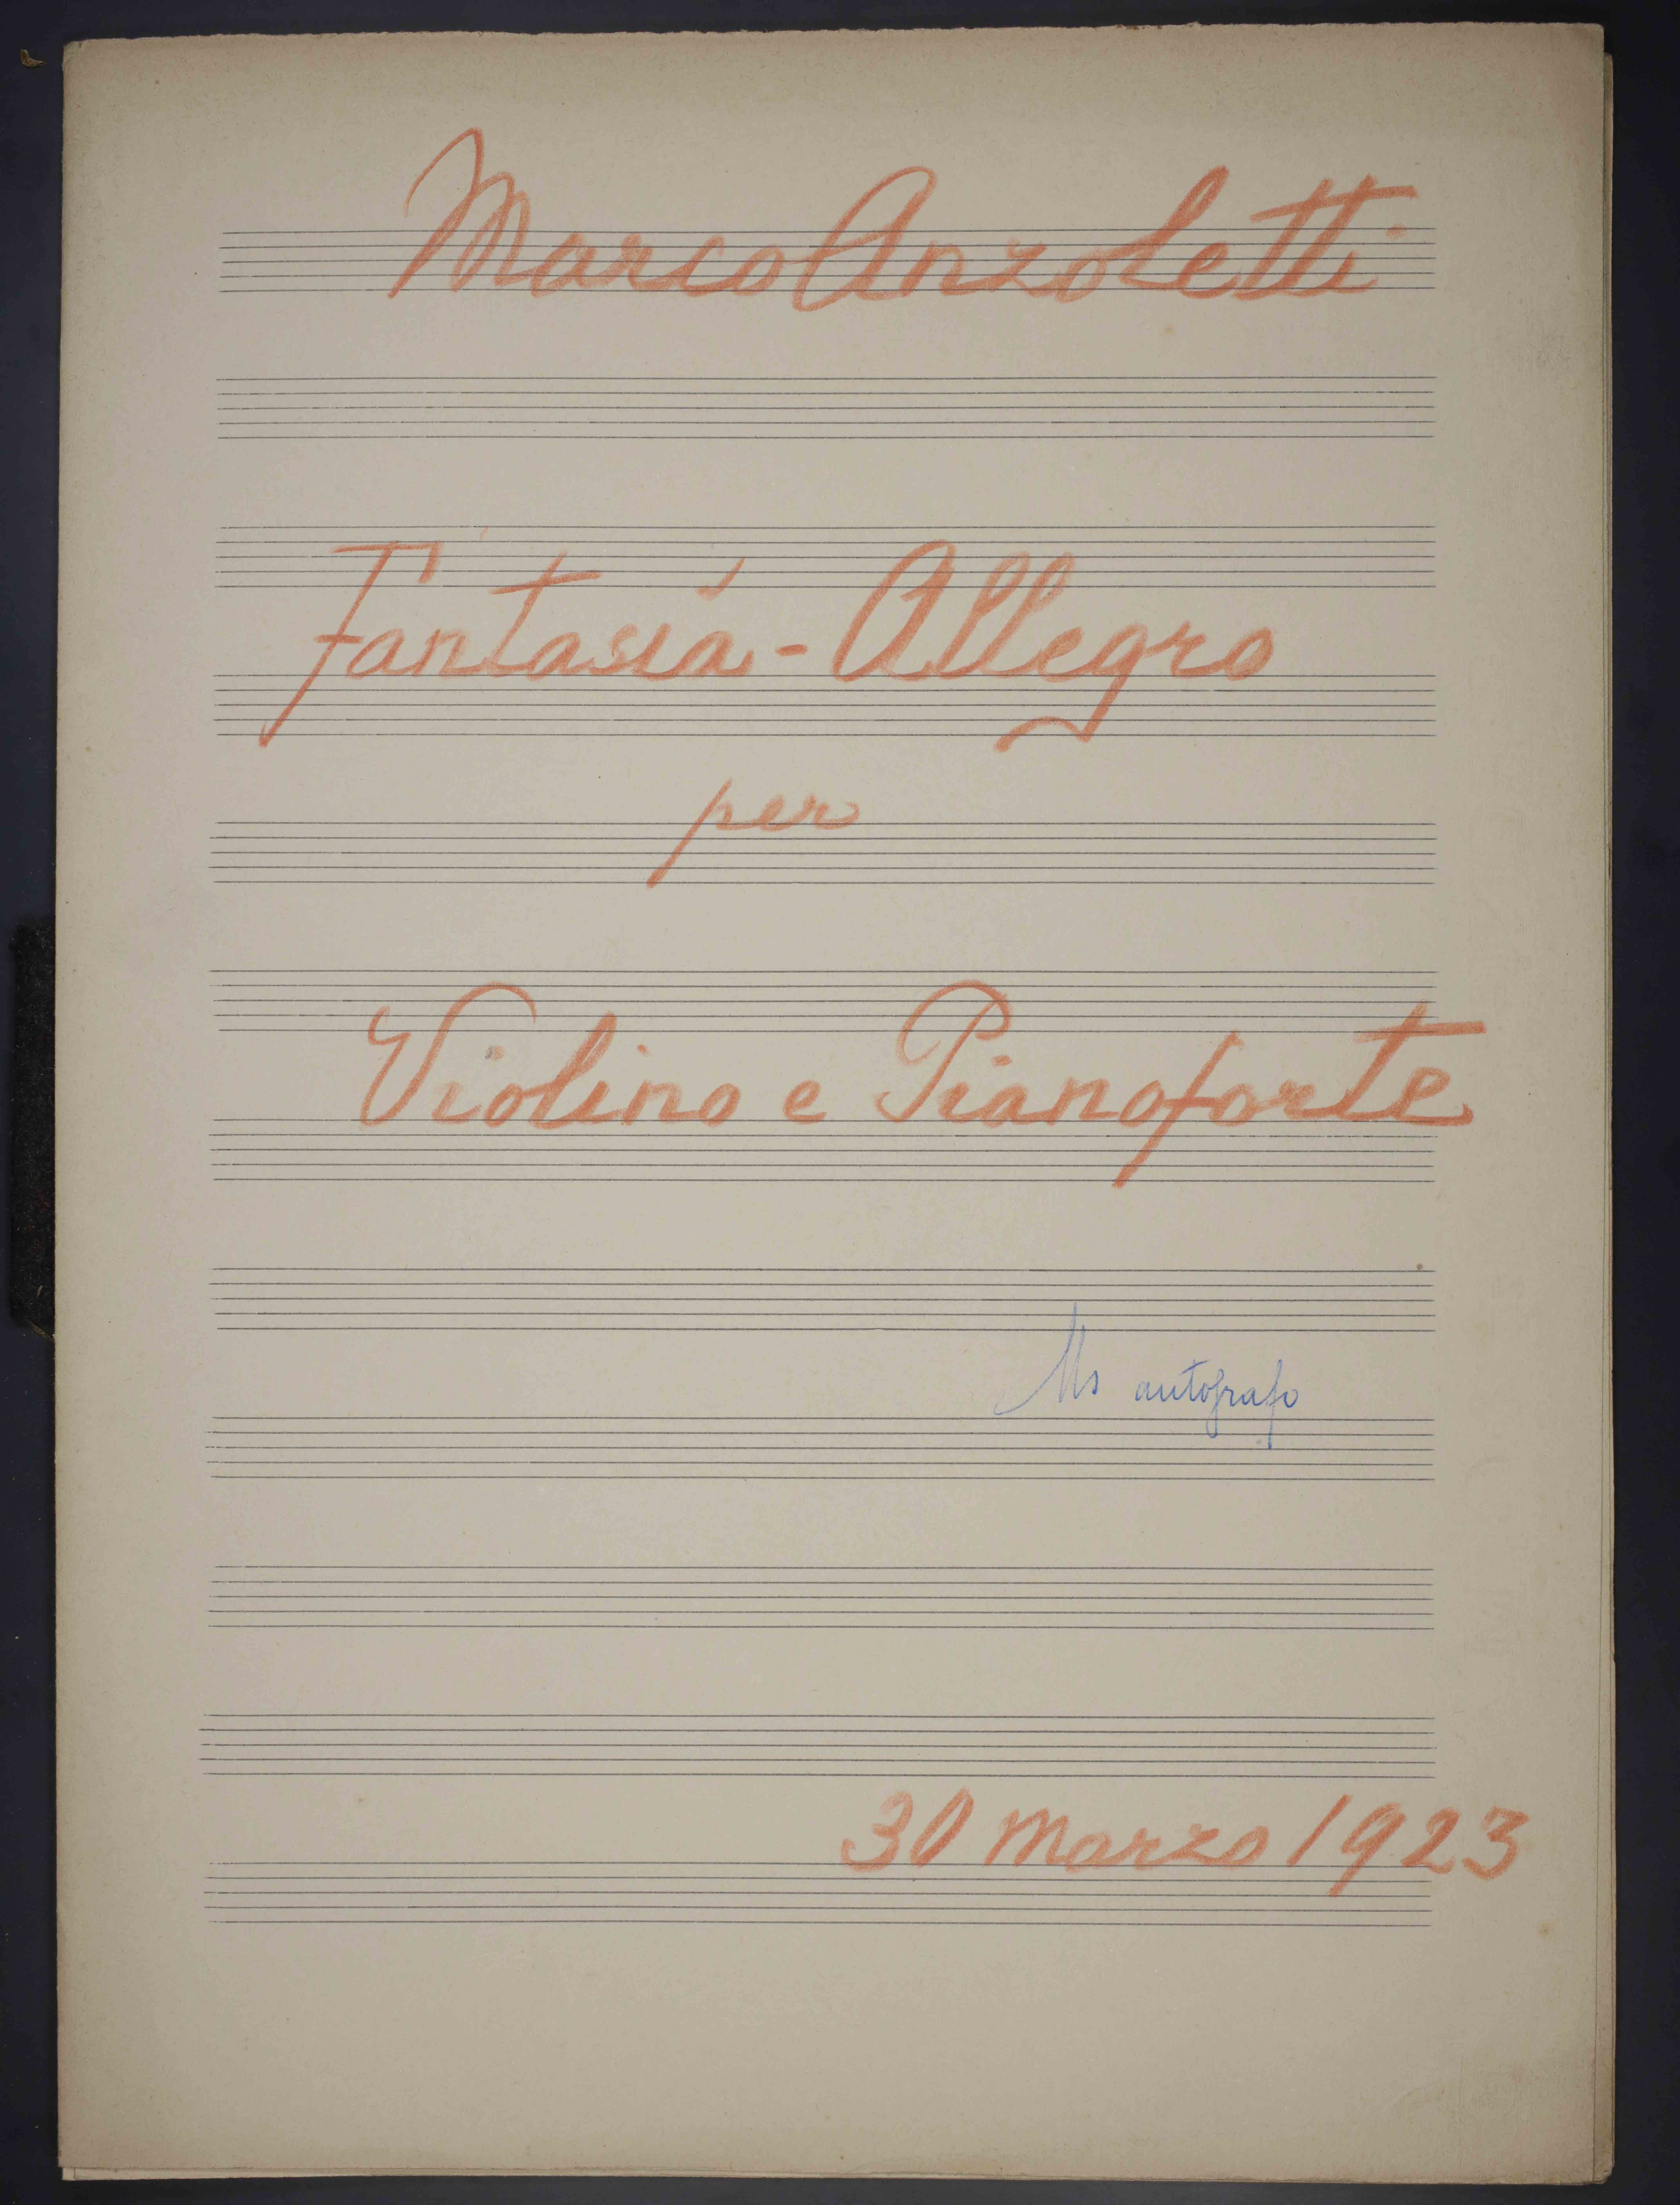 Marco Anzoletti
Fantasia - Allegro
per
Violino e Pianoforte
Ms autografo
30 Marzo 1923